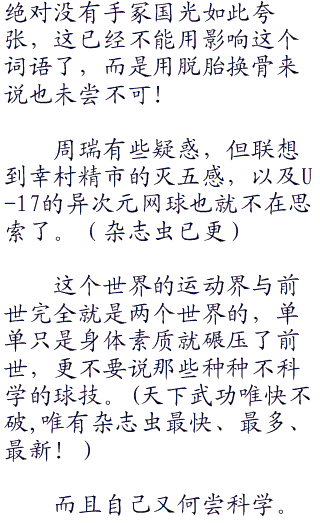 绝对没有手冢国光如此夸
张，这已经不能用影响这个
词语了，而是用脱胎换骨来
说也未尝不可！
周瑞有些疑惑，但联想
到幸村精市的灭五感，以及U
-17的异次元网球也就不在思
索了。（杂志虫已更）
这个世界的运动界与前
世完全就是两个世界的，单
单只是身体素质就碾压了前
世，更不要说那些种种不科
学的球技。(天下武功唯快不
破,唯有杂志虫最快、最多、
最新！)
而且自己又何尝科学。